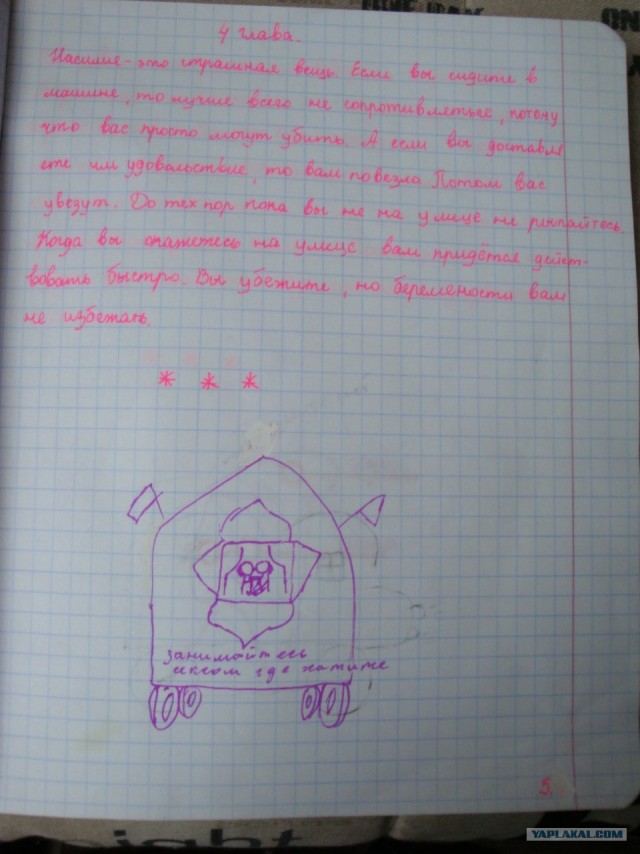 4 глава.
Насилие - это страшная вещь. Если вы сидите в
машине, то лучше всего не сопротивляться, потому
что вас просто могут убить. А если вы доставля
ете им удовольствие, то вам повезло. Потом вас
увезут. До тех пор пока вы не на улице не рыпайтесь.
Когда вы окажетесь на улице вам придётся дейст-
вовать быстро. Вы убежите, но беремености вам
не избежать.
* * *
занимайтесь
где хотите
5.
YAPLAKAL.COM